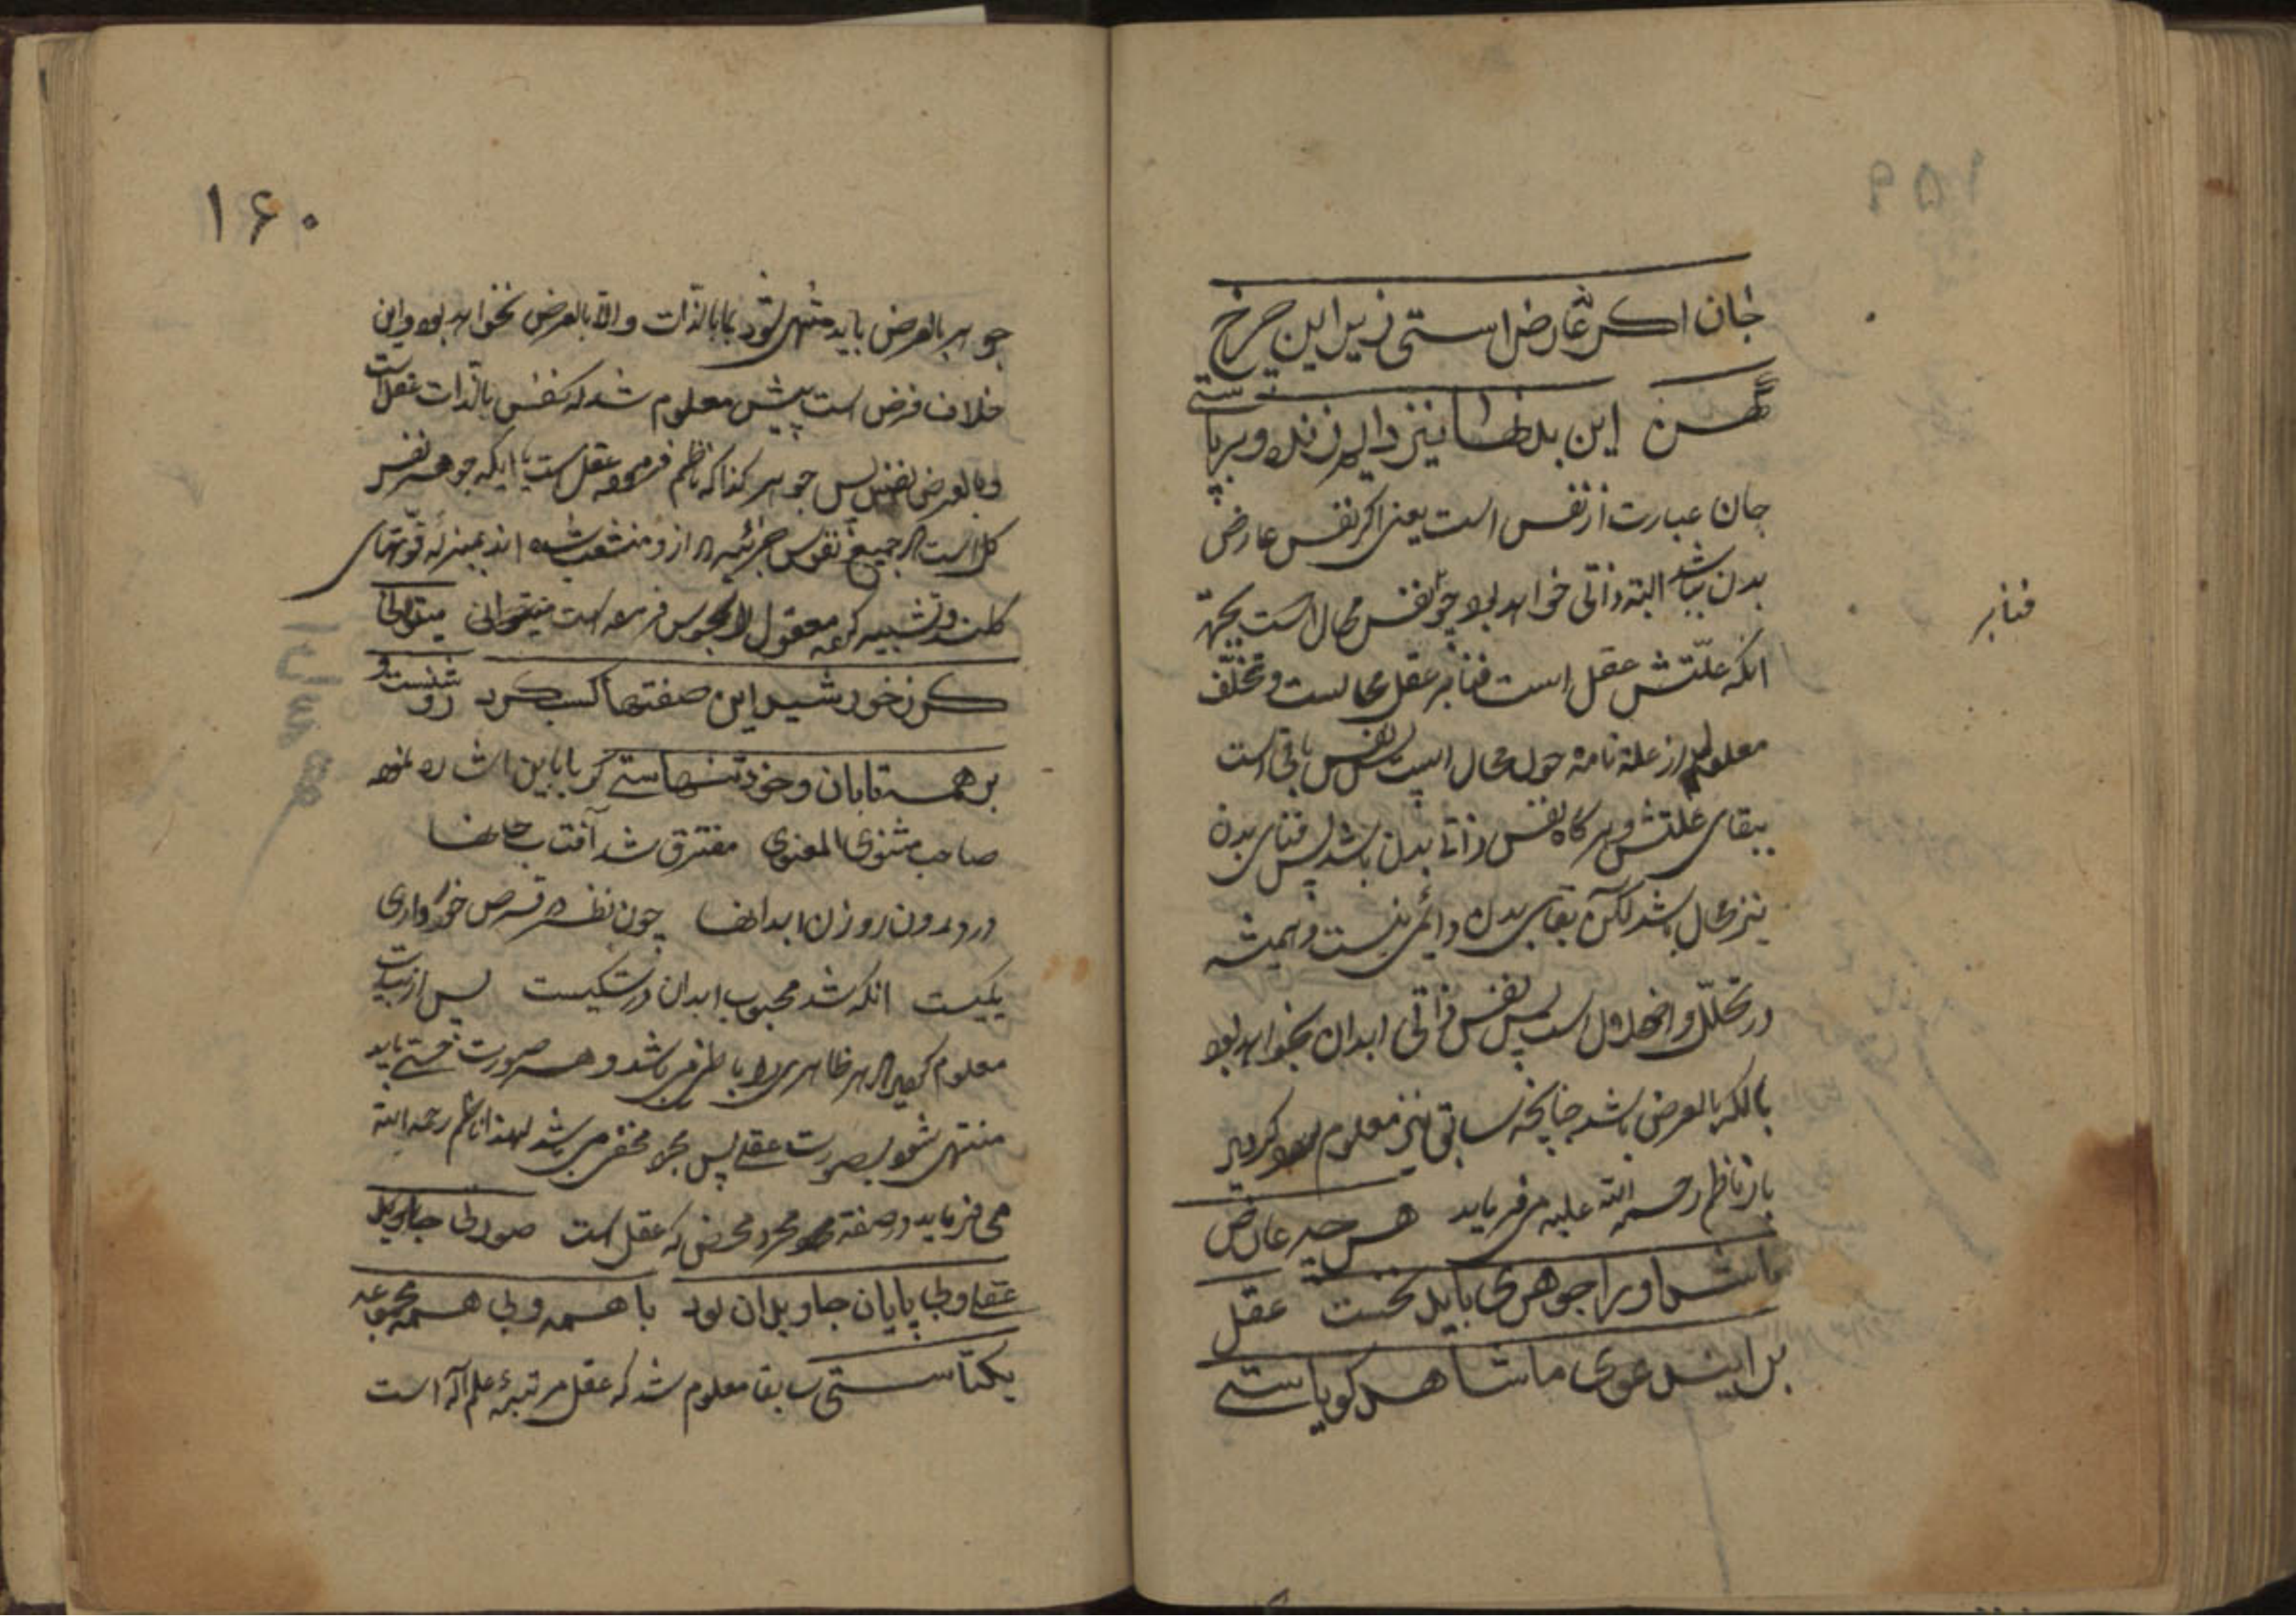 ۱۵۹
جان اکر نه عارض استی زیر این چرخ
کهن این بدنها نیز دایم زنده و بر پا ستی
جان عبارت از نفس است یعنی اکر نفس عارض
بدن نباشد البته ذاتی خواهد بود چون نفس محال است بجهة
انکه علّتش عقل است فنا بر عقل محالست و تخلّف
معلول از علة تامه چون محال است پس نفس باقی است
ببقای علتش و هر کاه نفس ذاتی بدن باشد پس فنای بدن
نیز محال باشد لکن بقای بدن دائمی نیست و همیشه
در تحلّل و اضمحلال است پس نفس ذاتی ابدان نخواهد بود
بالکه بالعرض باشد چنانچه سابق نیز معلوم کردید
باز ناظم رحمة الله علیه میفرماید هر چه عارض
باشد او را جوهری باید نخست عقل
بر این دعوی ما شاهد کویاستی
فنا بر
۱۶۰
جوهر بالعرض باید منتهی شود بما بالذّات و الّا بالعرض نخواهد بود و این
خلاف فرض است پیش معلوم شد که نفس بالذات عقل است
و بالعرض نفس پس جوهر کذا که ناظم فرموده عقل است یا اینکه جوهر نفس
کل است که جمیع نفوس جزئیه از او منشعب شده اند بمنزلهٔ قوّتهای
کلند و تشبیه که معقول را بمحسوس فرموده است میتوانی
کر ز خورشید این صفتها کسب کرد روشنست و
بر همه تابان و خود تنهاستی کویا باین اشاره نموده
صاحب مثنوی المعنوی مفترق شد آفتاب جانها
در درون روزن ابدانها چون نظر در قرص خور داری
یکیست انکه شد محجوب ابدان در شکیست پس از بیانات
معلوم کردید که هر ظاهری را باطنی میباشد و هر صورت حسّی باید
منتهی شود بصورت عقلی پس مجرد محض میباشد لهذا ناظم رحمه الله
می فرماید در صفة مجرد محض که عقل است صورتی جاوید
عقلی و بی پایان جاویدان بود با همه و بی همه مجموعه
یکتاستی سابقا معلوم شد که عقل مرتبهٔ علم اله است